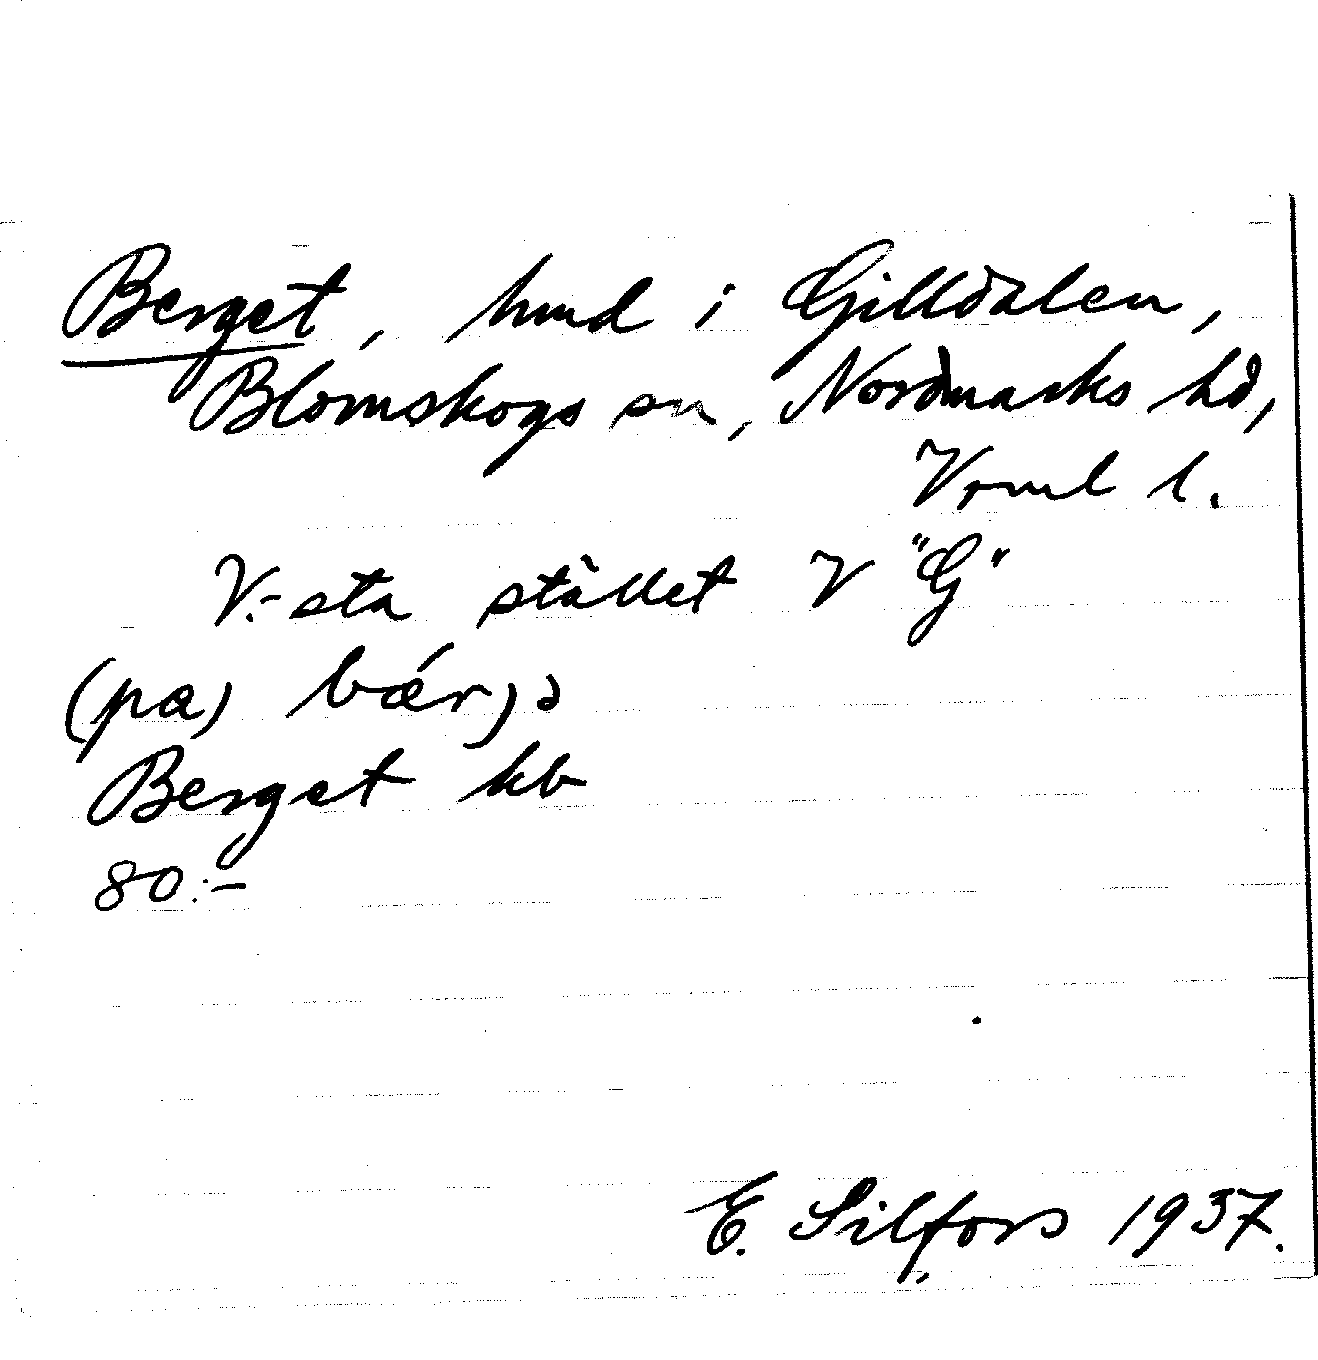 Berget, hmd i Gilldalen,
Blomskogs sn, Nordmarks hd,
Vrml l.
V.-sta stället V "G"
(pa) bǽrjə
Berget kb
80:-
E. Silfors 1937.